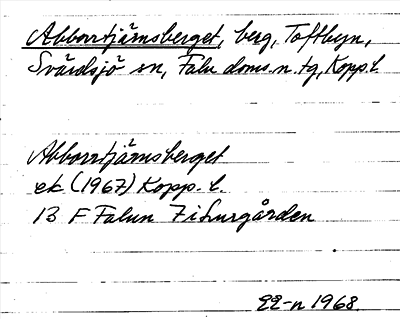 Abborrtjärnsberget, berg, Toftbyn,
Svärdsjö sn, Falu doms.n. tg, Kopp. l.
Abborrtjärnsberget
ek (1967) Kopp. l.
13 F Falun 7 i Lurgården
22-n 1968.